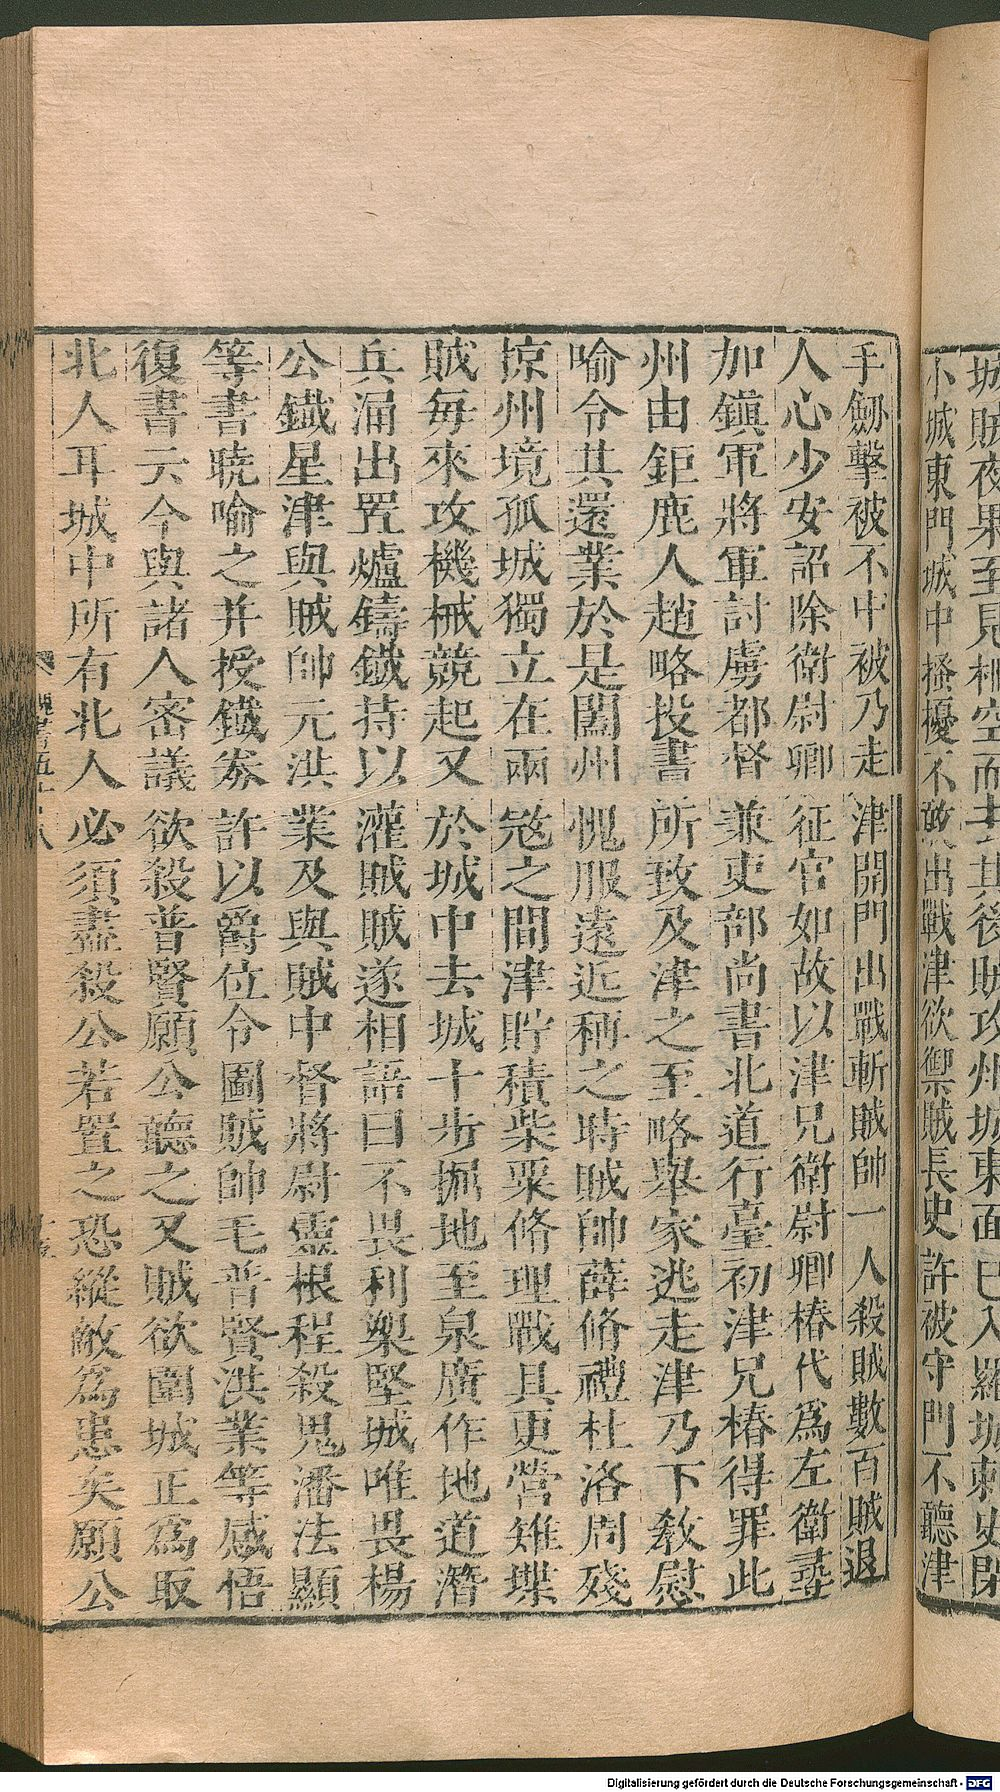 城賊夜果至見柵空而去其後賊攻州城東面已入羅城刺史閉
小城東門城中掻擾不敢出戰津欲禦賊長史許被守門不聽津
手劒擊被不中被乃走津開門出戰斬賊帥一人殺賊數百賊退
人心少安詔除衛尉卿征官如故以津兄衛尉卿椿代爲左衛尋
加鎭軍將軍討虜都督兼吏部尚書北道行臺初津兄椿得罪此
州由鉅鹿人趙略投書所致及津之至略舉家逃走津乃下敎慰
喻令其還業於是闔州愧服遠近稱之時賊帥薛脩禮杜洛周殘
掠州境孤城獨立在兩㓂之間津貯積柴粟脩理戰具更營雉堞
賊每來攻機械競起又於城中去城十步掘地至泉廣作地道潛
兵涌出置爐鑄鐵持以灌賊賊遂相語曰不畏利槊堅城唯畏楊
公鐵星津與賊帥元洪業及與賊中督將尉靈根程殺鬼潘法顯
等書曉喻之并授鐵券許以爵位令圖賊帥毛普賢洪業等感悟
復書云今與諸人密議欲殺普賢願公聽之又賊欲圍城正爲取
北人耳城中所有北人必須盡殺公若置之恐縱敵爲患矣願公
魏書五十八
Digitalisierung gefördert durch die Deutsche Forschungsgemeinschaft - DFG